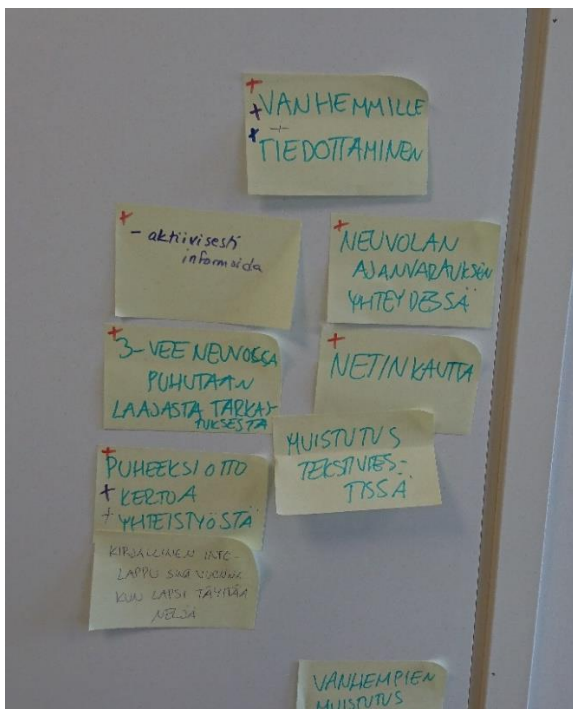 VANHEMMILLE
TIEDOTTAMINEN
- aktiivisesti
informoida
NEUVOLAN
AJANVARAUKSEN
YHTEYDESSÄ
3-VEE NEUVOLASSA
PUHUTAAN
LAAJASTA TARKAS
TUKSESTA
NETIN KAUTTA
MUISTUTUS
TEKSTIVIES-
TISSÄ
PUHEEKSI OTTO
+ KERTOA
+ YHTEISTYÖSTÄ
KIRJALLINEN INFO-
LAPPU SINÄ VUONNA
KUN LAPSI TÄYTTÄÄ
NELJÄ
VANHEMPIEN
MUISTUTUS